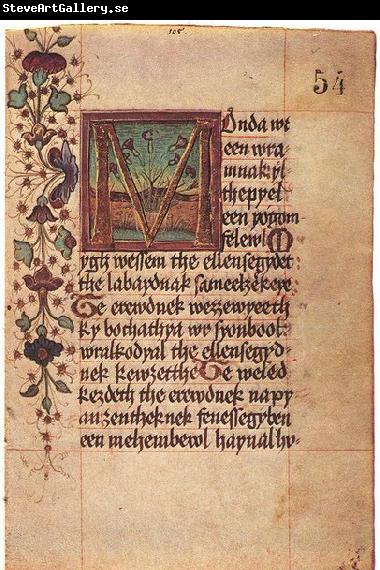 SteveArtGallery.se
105
54
MOnda wr
een wra-
mnak yl
thepyel
een yogom
felewl M
ygh wessem the ellensegydet
the labaydnak sameelzekere
Te erewdnek wezzeweeth
ky bothathya wr syonbool
wralkodyal the ellensegyd-
nek kewzetthe Te weled
kezdeth the erewdnek napy
an zentheknek fenessegyben
een mehembewl haynal hv-
SteveArtGallery.se